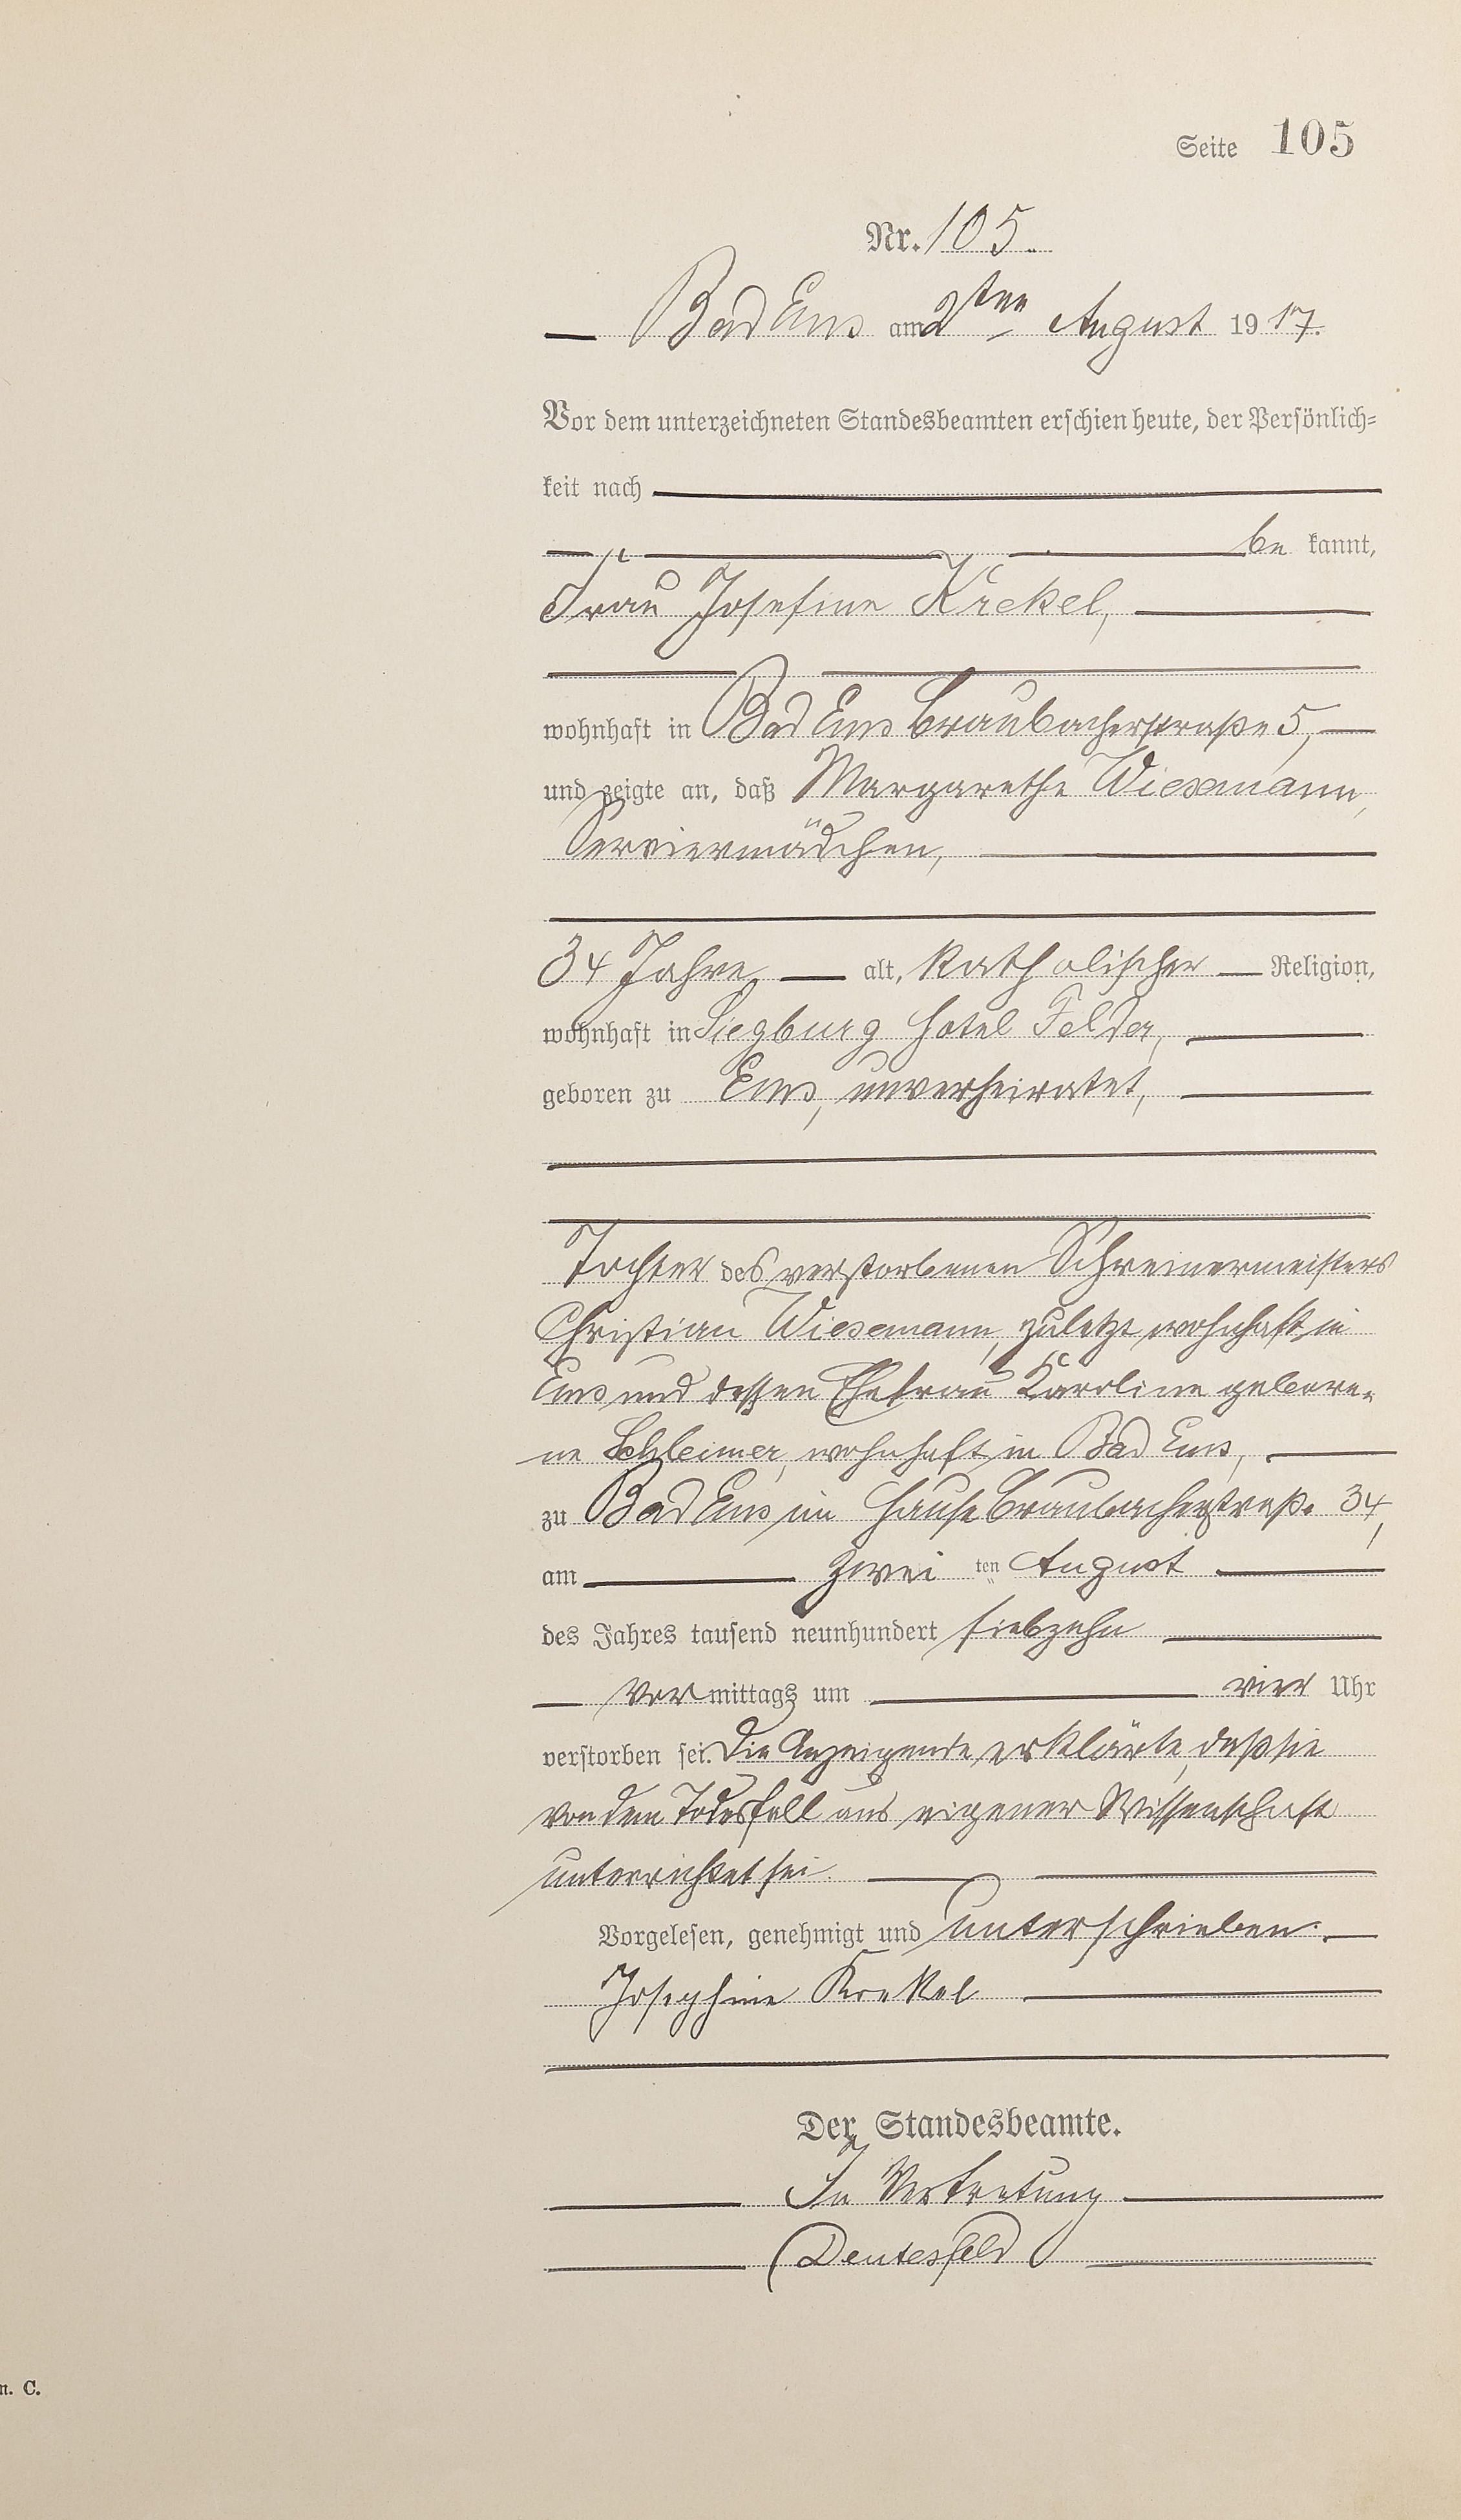 Seite 105
Nr. 105.
Bad Ems am 2ten August 1917.
Vor dem unterzeichneten Standesbeamten erschien heute, der Persönlich=
keit nach
be kannt,
Frau Josefine Krekel,
wohnhaft in Bad Ems Braubacherstraße 5,
und zeigte an, daß Margarethe Wiesemann,
Serviermädchen,
34 Jahre alt, katholischer Religion,
wohnhaft in Siegburg Hotel Felder,
geboren zu Ems, unverheiratet,
Tochter des verstorbenen Schreinermeisters
Christian Wiesemann, zuletzt wohnhaft in
Ems und dessen Ehefrau Karoline gebore-
ne Schleimer, wohnhaft in Bad Ems,
zu Bad Ems im Hause Braubacherstraße 34,
am zwei ten August
des Jahres tausend neunhundert siebzehn
Vor mittags um vier Uhr
verstorben sei. Die Anzeigende erklärte, daß sie
von dem Todesfall aus eigener Wissenschaft
unterrichtet sei.
Vorgelesen, genehmigt und unterschrieben.
Josephine Krekel
Der Standesbeamte.
In Vertretung
Deutesfeld
n. C.